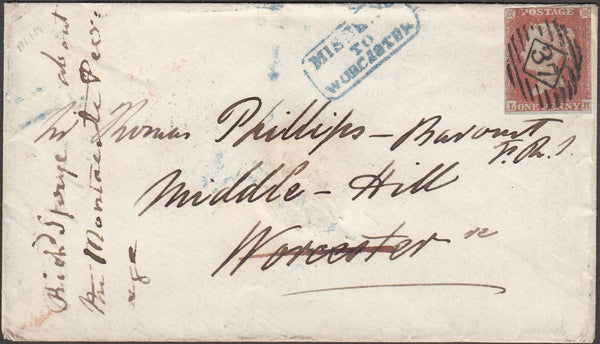 MIS
TO
WORCESTER
POSTAGE
37
L
ONE PENNY
Sr Thomas Phillips - Baronet
F.R.S
Middle - Hill
Worcester
Rich Spry about
the Montacute Peer:
age